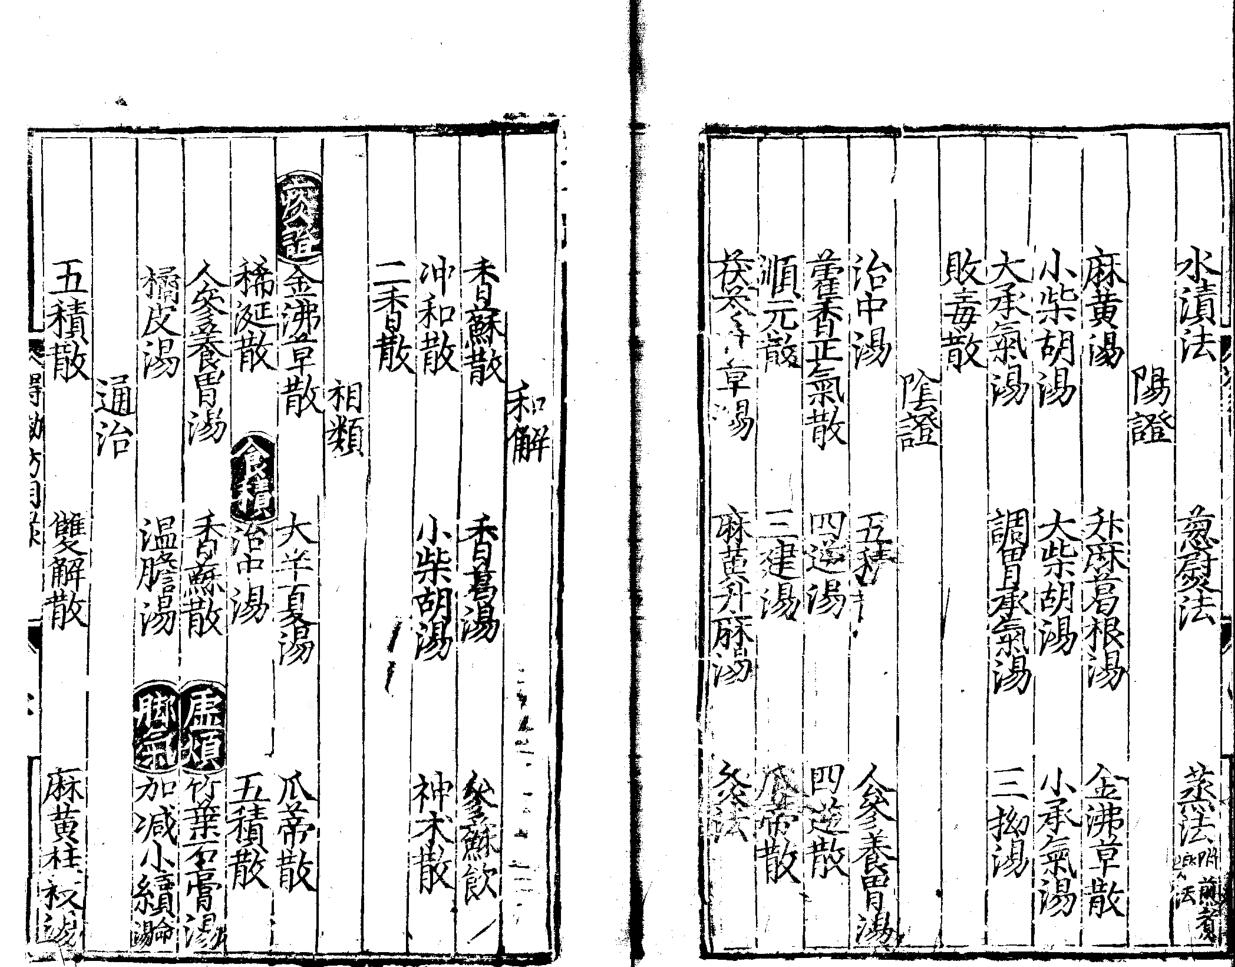 水漬法 葱熨法 蒸法
陽證
麻黄湯 升麻葛根湯 金沸草散
小柴胡湯 大柴胡湯 小承氣湯
大承氣湯 調胃承氣湯 三拗湯
敗毒散
陰證
治中湯 五積 人參養胃湯
藿香正氣散 四逆湯 四逆散
順元散 三建湯 瓜蒂散
茯苓 草湯 麻黄升麻湯 灸法
和解
香蘇散 香葛湯 參蘇飲
冲和散 小柴胡湯 神术散
二香散
相類
痰證 金沸草散 大半夏湯 瓜蒂散
稀涎散 食積 治中湯 五積散
人參養胃湯 香蘇散 虛煩 竹葉石膏湯
橘皮湯 温膽湯 脚氣 加减小續命湯
通治
五積散 雙解散 麻黄桂枝湯
得効方目録